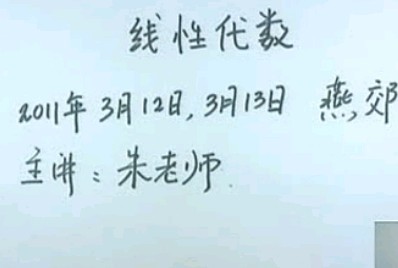 线性代数
2011年3月12日,3月13日 燕郊
主讲:朱老师.